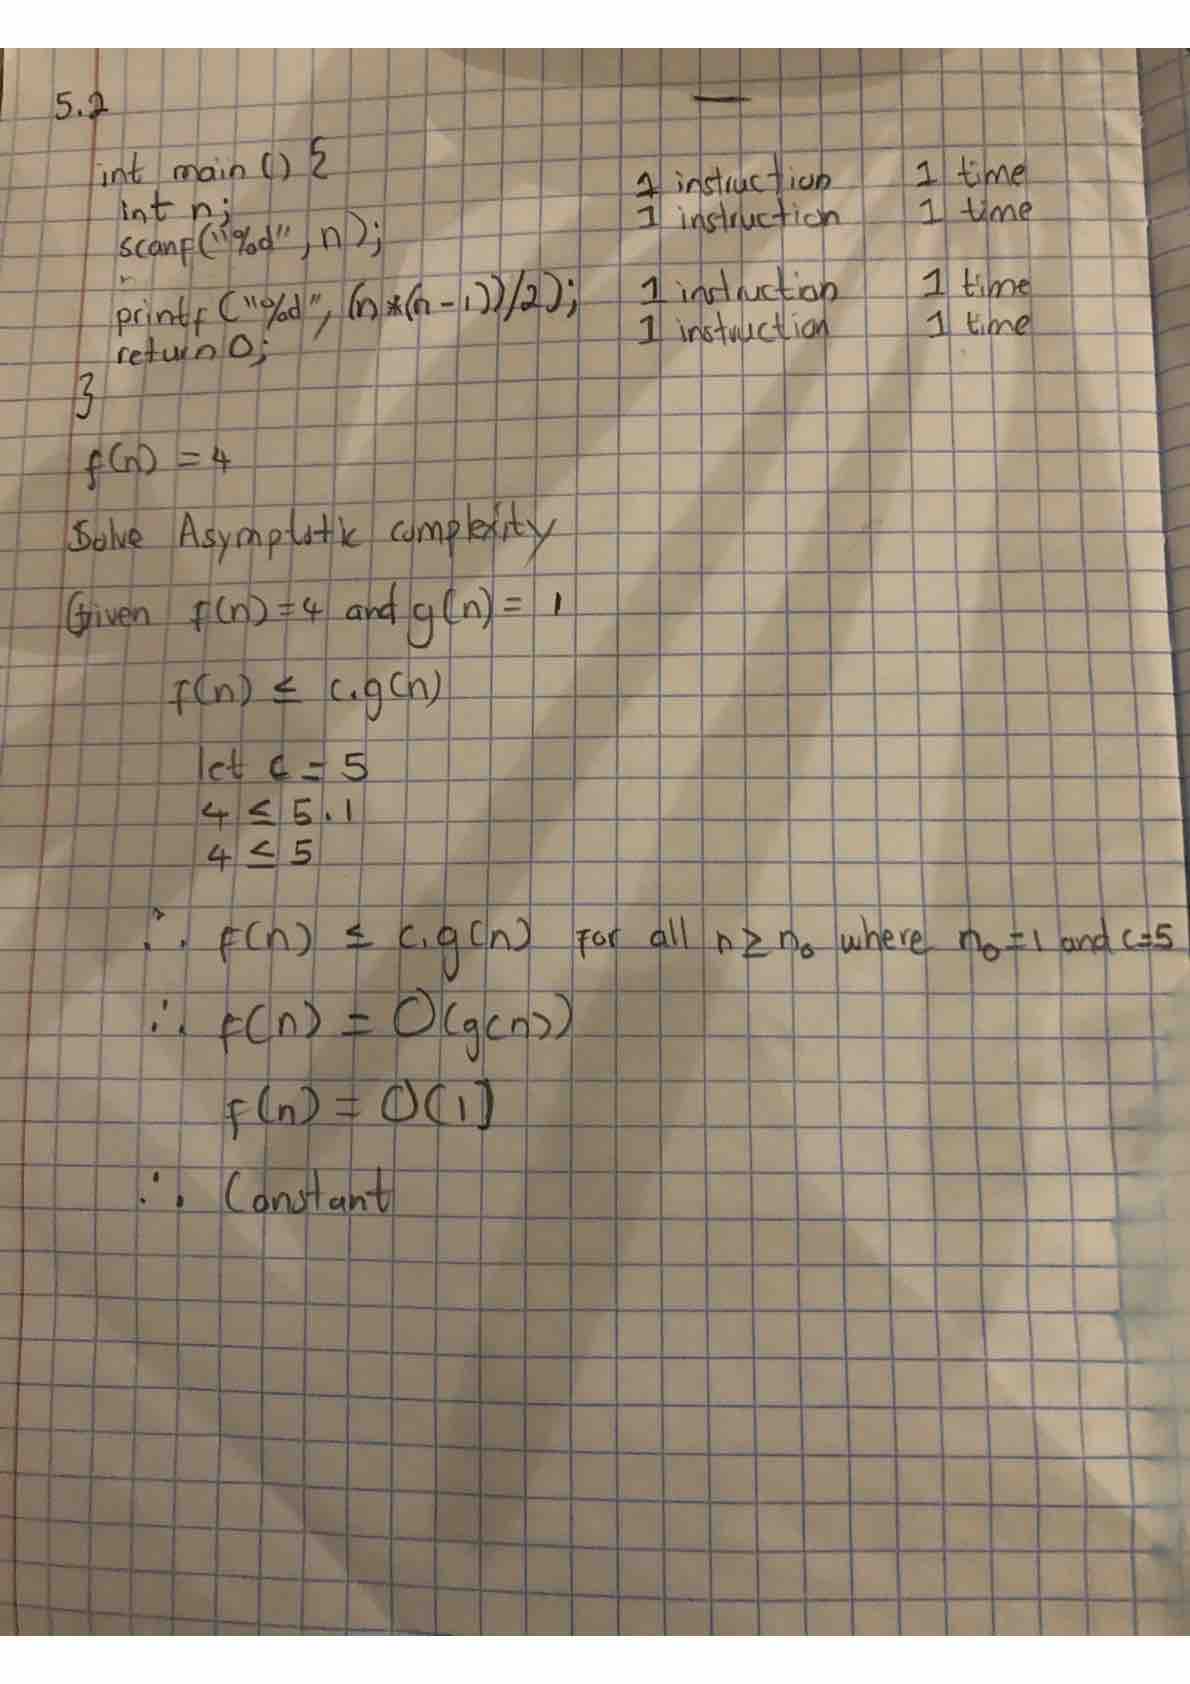 5.2
int main () {
int n; 1 instruction 1 time
scanf("%d", n); 1 instruction 1 time
printf ("%d", (n*(n-1))/2); 1 instruction 1 time
return 0; 1 instruction 1 time
}
f(n) = 4
Solve Asymptotic complexity
Given f(n)=4 and g(n) = 1
f(n) ≤ c.g(n)
let c = 5
4 ≤ 5.1
4 ≤ 5
∴ f(n) ≤ c.g(n) for all n ≥ n₀ where n₀=1 and c=5
∴ f(n) = O(g(n))
f(n) = O(1)
∴ Constant